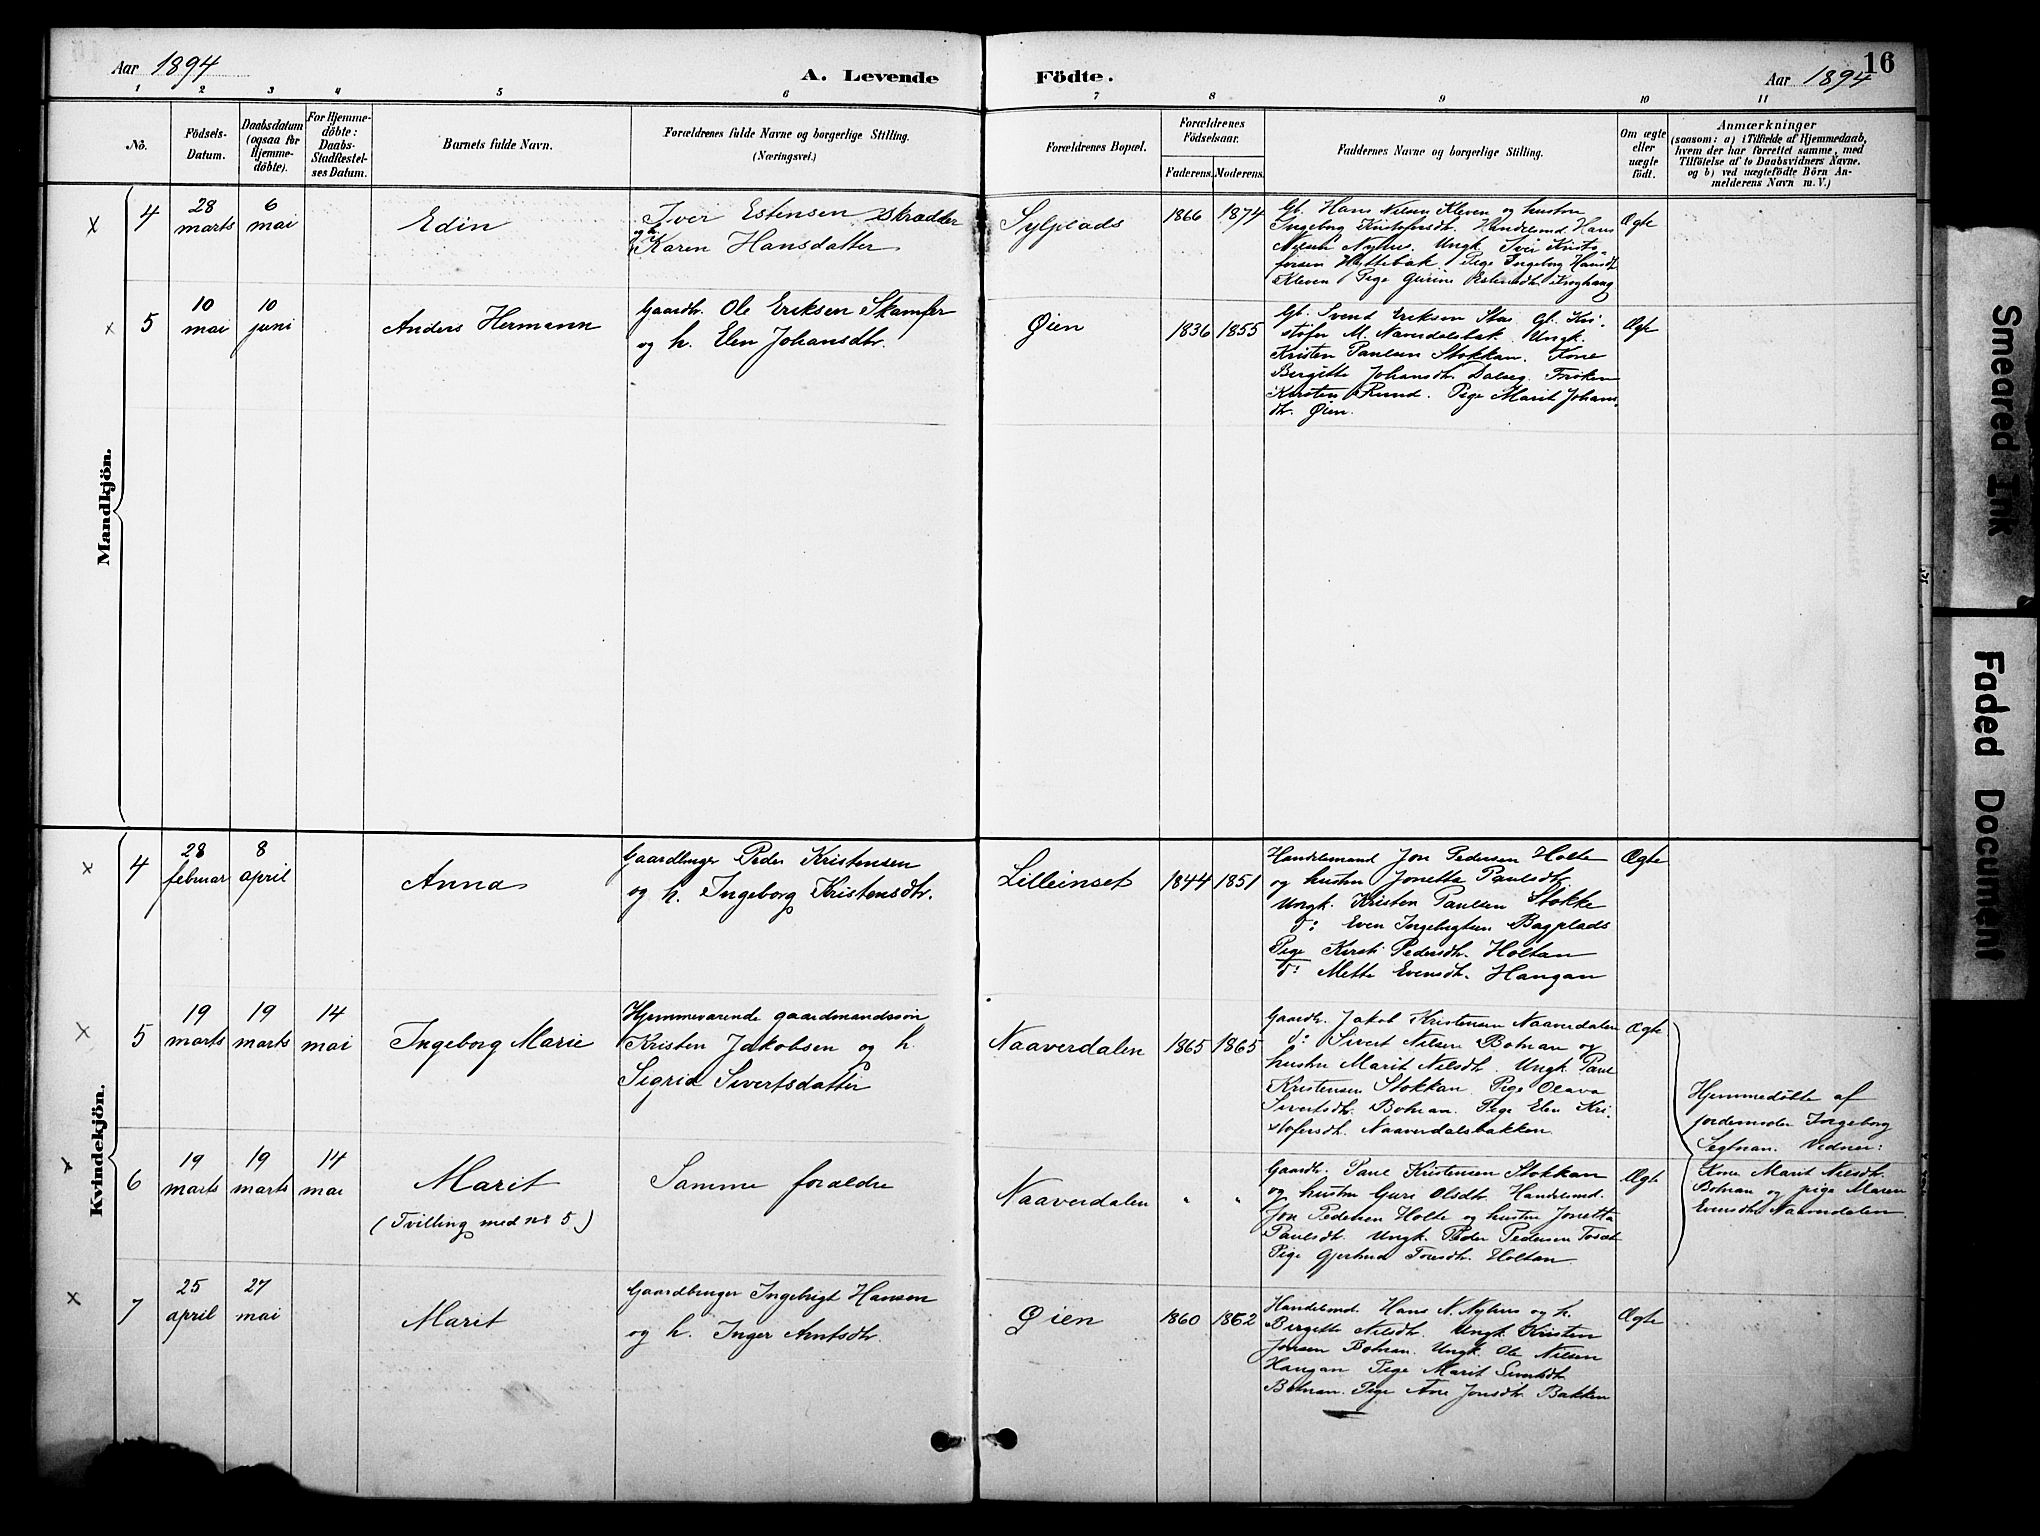 Aar 1894
A. Levende
Födte.
Aar 1894
16
1 2 3 4 5 6 7 8 9 10 11
Nö.
Födsels-Datum.
Daabsdatum (ogsaa for Hjemmedöbte).
For Hjemmedöbte: Daabs-Stadfæstelses Datum.
Barnets fulde Navn.
Forældrenes fulde Navne og borgerlige Stilling. (Næringsvei.)
Forældrenes Bopæl.
Forældrenes Födselsaar.
Faderens. Moderens.
Faddernes Navne og borgerlige Stilling.
Om ægte eller uægte födt.
Anmærkninger
(saasom: a) i Tilfælde af Hjemmedaab, hvem der har forrettet samme, med Tilföielse af to Daabsvidners Navne. og b) ved uægtefödte Börn Anmelderens Navn m. V.)
Mandkjön.
x 4
28 marts
6 mai
Edin
Iver Estensen Skrædder
og h. Karen Hansdatter
Sylplads
1866 1874
Gb. Hans Nilsen Kleven og hustru
Ingeborg Kristofersdtr. Handelsmd. Hans
Nilsen Nyhus. Ungk. Iver Kristo-
fersen Hyttebak Pige Ingeborg Hansdt.
Kleven Pige Gurine Estensdtr. Kroghaug
Ægte
x 5
10 mai
10 juni
Anders Hermann
Gaardbr. Ole Eriksen Skamfer
og h. Elen Johansdtr.
Øien
1836 1855
Gb. Svend Eriksen Stai Gb. Kri-
stofer M. Naverdalsbak. Ungk.
Kristen Paulsen Stokkan. Kone
Bergitte Johansdtr. Dalseg. Frøken
Kirsten Rund. Pige Marit Johans-
dtr. Øien.
Ægte
Kvindekjön.
x 4
28 februar
8 april
Anna
Gaardbruger Peder Kristensen
og h. Ingeborg Kristensdtr.
Lilleinset
1844 1851
Handelsmand Jon Pedersen Holte
og hustru Jonetta Paulsdtr.
Ungk. Kristen Paulsen Stokke
d: Even Ingebrigtsen Bagplads
Pige Kirsti Pedersdtr. Holtan
d: Mette Evensdtr. Haugan
Ægte
x 5
19 marts
19 marts
14 mai
Ingeborg Marie
Hjemmeværende gaardmandssøn
Kristen Jakobsen og h.
Sigrid Sivertsdatter
Naaverdalen
1865 1865
Gaardbr. Jakob Kristensen Naaverdalen
d: Sivert Nilsen Botnan og
hustru Marit Nilsdtr. Ungk. Paul
Kristensen Stokkan Pige Olava
Sivertsdtr. Botnan. Pige Elen Kri-
stofersdtr. Naaverdalsbakken
Ægte
Hjemmedöbte af
jordemoder Ingeborg
Vidner:
Kone Marit Nilsdtr.
Botnan og pige Maren
Evensdtr. Naaverdalen
x 6
19 marts
19 marts
14 mai
Marit
(Tvilling med nr 5)
Samme forældre
Naaverdalen
" "
Gaardbr. Paul Kristensen Stokkan
og hustru Guri Olsdtr. Handelsmd.
Jon Pedersen Holte og hustru Jonetta
Paulsdtr. Ungk. Peder Pedersen Toset
Pige Gjertrud Toresdtr. Holtan
Ægte
x 7
25 april
27 mai
Marit
Gaardbruger Ingebrigt Hansen
og h. Inger Arntsdtr.
Øien
1860 1862
Handelsmd. Hans N. Nyhus og h.
Bergitte Nilsdtr. Ungk. Kristen
Jonsen Botnan. Ungk. Ole Nilsen
Haugan Pige Marit Sivertsdtr.
Botnan. Pige Ane Jonsdtr. Bakken
Ægte
Smeared Ink
Faded Document